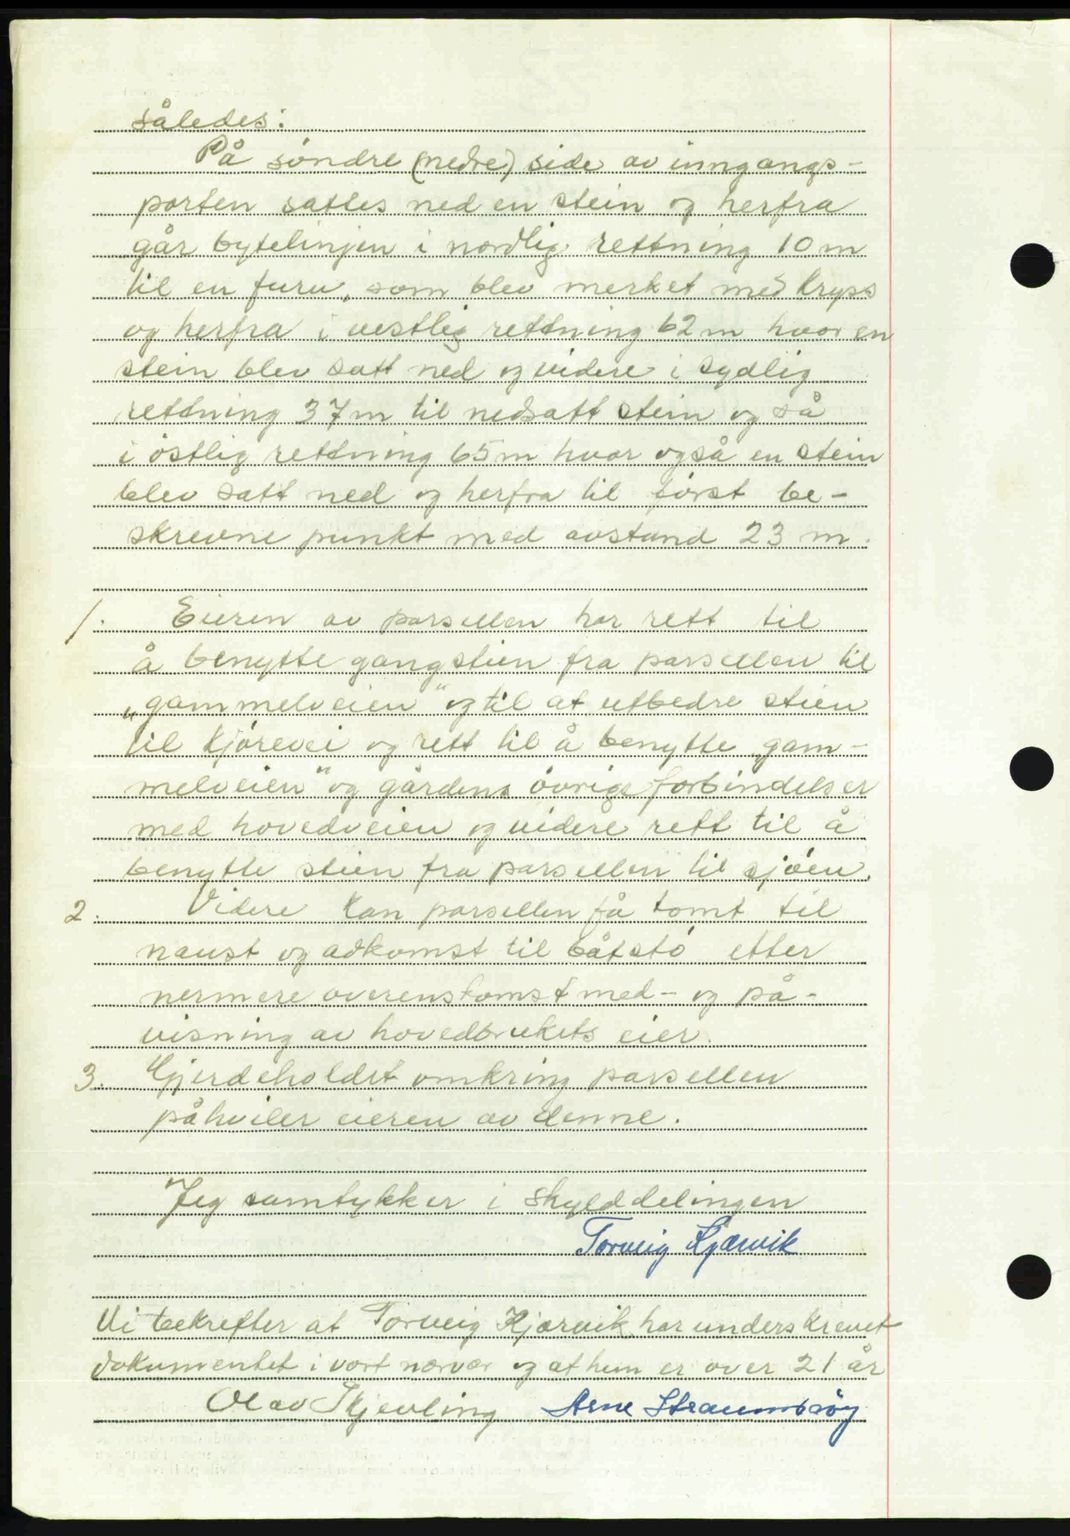 således:
På søndre (nedre) side av inngangs-
porten sattes ned en stein og herfra
går bytelinjen i nordlig rettning 10 m
til en furu, som blev merket med kryss
og herfra i vestlig rettning 62 m hvor en
stein blev satt ned og videre i sydlig
rettning 37 m til nedsatt stein og så
i östlig rettning 65 m hvor også en stein
blev satt ned og herfra til først be-
skrevne punkt med avstand 23 m.
1. Eieren av parsellen har rett til
å benytte gangstien fra parsellen til
„gammelveien" og til at utbedre stien
til kjörevei og rett til å benytte „gam-
melveien" og gårdens övrige forbindelser
med hovedveien og videre rett til å
benytte stien fra parsellen til sjöen.
2. Videre kan parsellen få tomt til
naust og adkomst til båtstö etter
nermere overenskomst med- og på-
visning av hovedbrukets eier.
3. Gjerdeholdet omkring parsellen
påhviler eieren av denne.
Jeg samtykker i skylddelingen
Torveig Kjærvik
Vi bekrefter at Torveig Kjærvik har underskrevet
dokumentet i vort nærvær og at hun er over 21 år
Olav Skjevling Arne Straumsöy